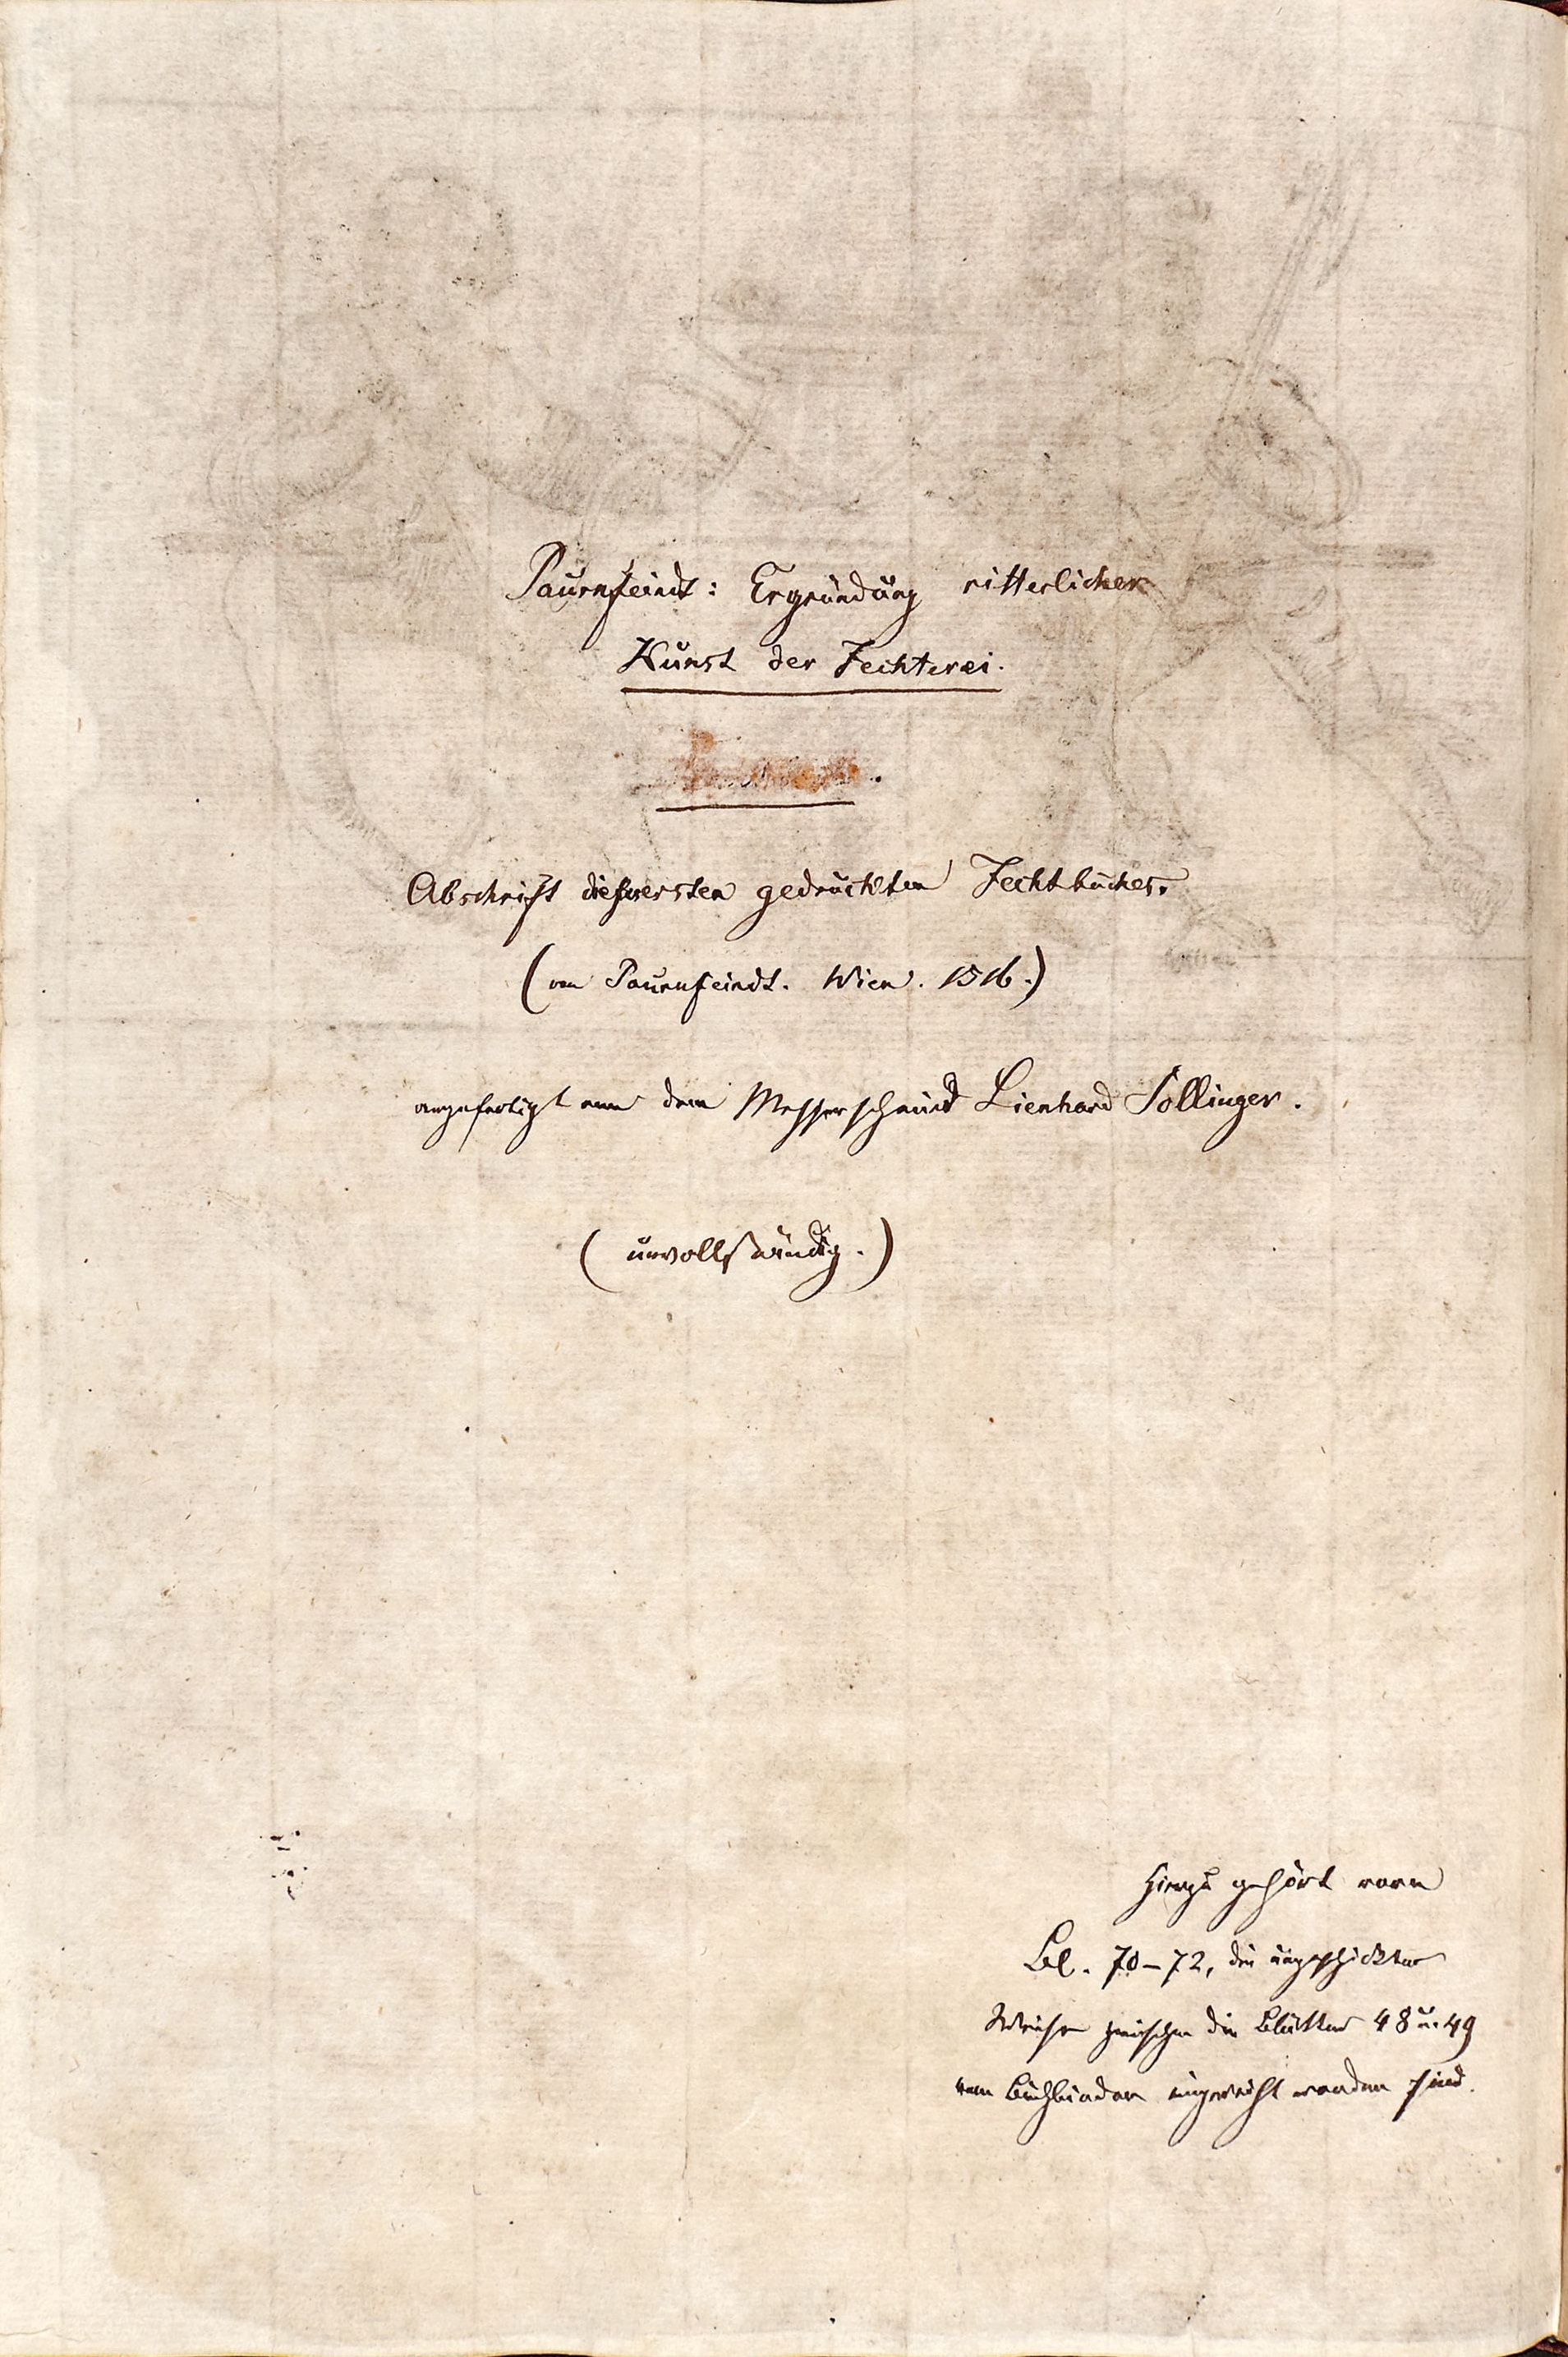 Paurnfeindt: Ergründung ritterlicher
Kunst der Fechterei.
Abschrift dieses ersten gedruckten Fechtbuches.
(von Paurnfeindt. Wien. 1516.)
angefertigt von dem Messerschmied Lienhard Sollinger.
(unvollständig.)
Hierzu gehört vorn
Bl. 70–72, die ungeschickter
Weise zwischen die Blätter 48 u. 49
vom Buchbinder eingereiht worden sind.